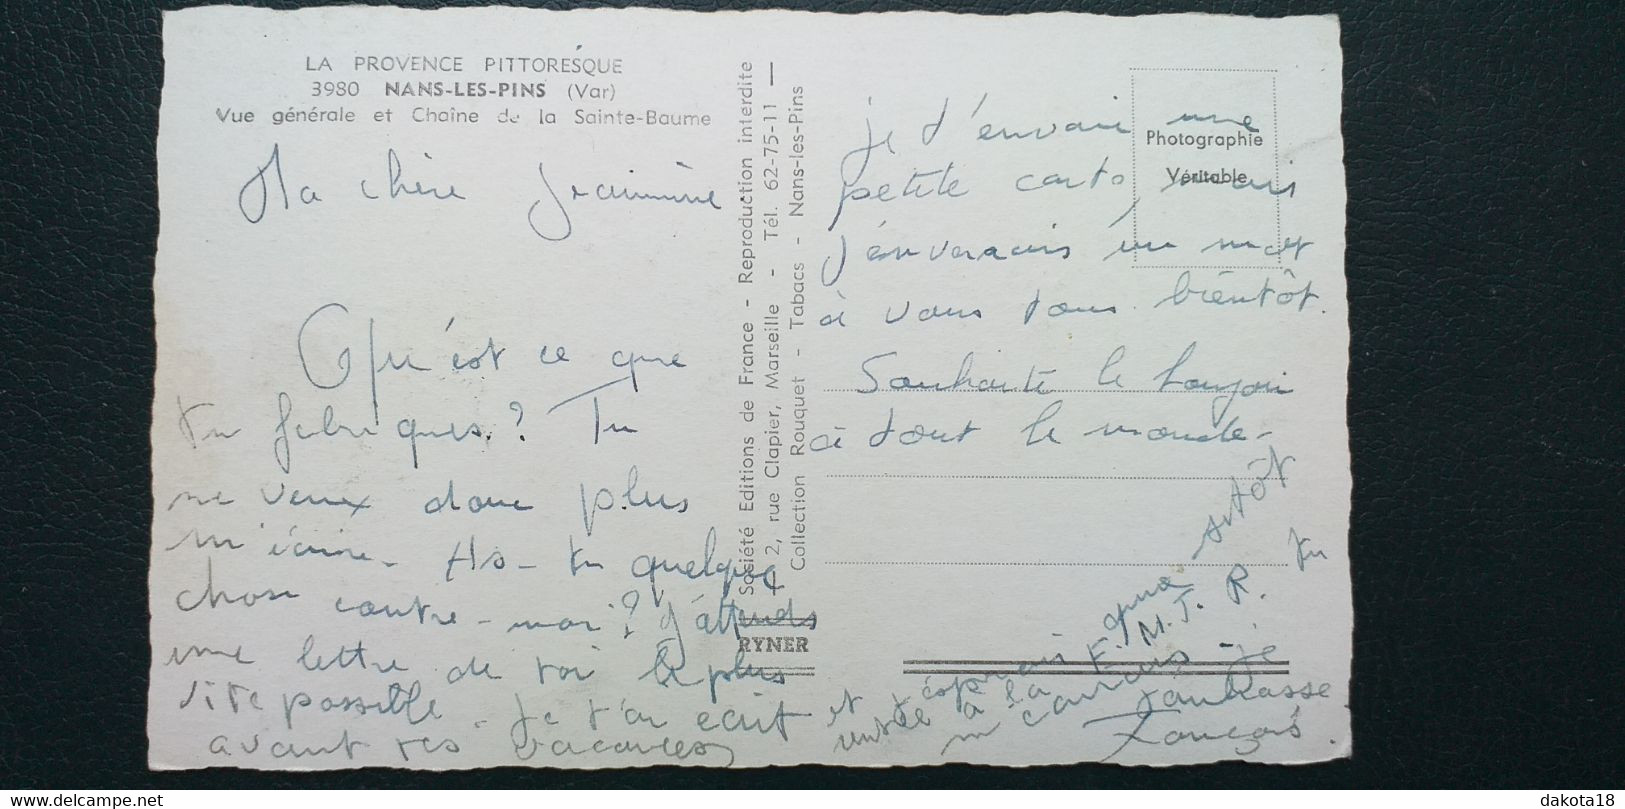 LA PROVENCE PITTORESQUE
3980 NANS-LES-PINS (Var)
Vue générale et Chaîne de la Sainte-Baume
Ma chère
Qu'est ce que
tu fabriques? Tu
ne veux donc plus
m'écrire - As-tu quelque
chose contre-moi? J'attends
une lettre de toi le plus
vite possible - Je t'ai écrit
avant tes vacances
Société Editions de France - Reproduction interdite
2, rue Clapier, Marseille - Tél. 62-75-11 —
Collection Rouquet - Tabacs - Nans-les-Pins
RYNER
Photographie
Véritable
je t'envoie une
petite carte mais
j'enverrais un mot
à vous tous bientôt.
Souhaite le bonjour
à tout le monde -
et j'espérais que sitôt
à la E.M.T.R. tu
m'écrirais - je
t'embrasse
François.
dakota18